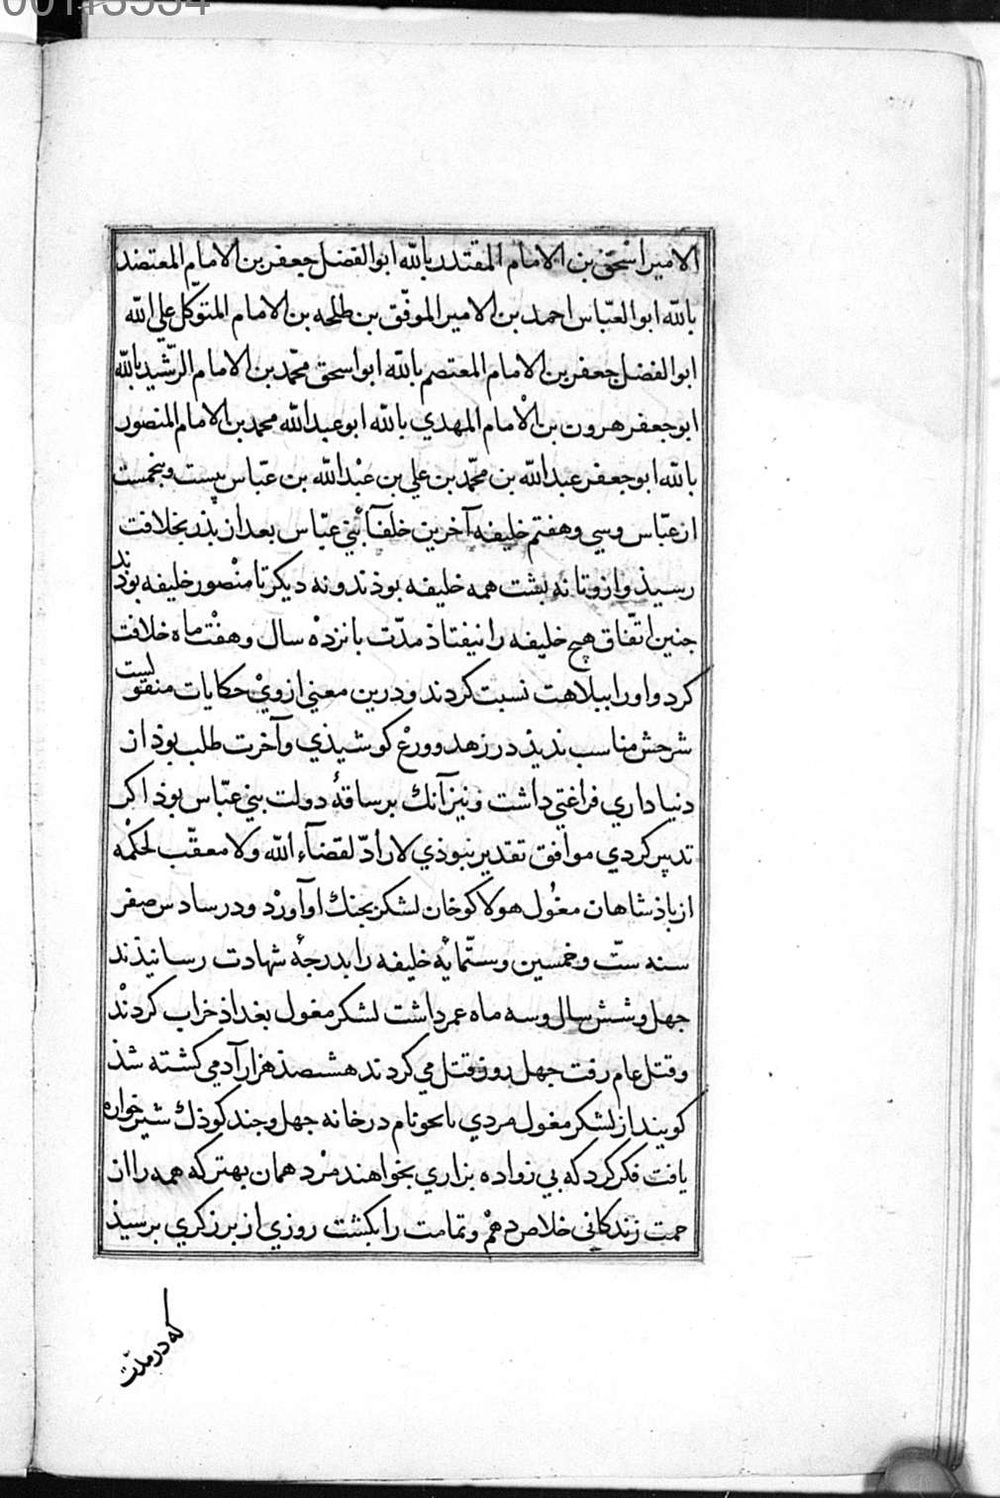 00113934
الامیر اسحق بن الامام المقتدر بالله ابو الفضل جعفر بن الامام المعتضد
بالله ابو العبّاس احمد بن الامیر الموفّق بن طلحه بن الامام المتوکّل علی الله
ابو الفضل جعفر بن الامام المعتصم بالله ابو اسحق محمّد بن الامام الرّشید بالله
ابو جعفر هرون بن الامام المهدي بالله ابو عبد الله محمد بن الامام المنصور
بالله ابو جعفر عبد الله بن محمّد بن علی بن عبد الله بن عبّاس بیست و پنجمست
از عبّاس و سي و هفتم خلیفه آخرین خلفآ بني عبّاس بعد از پذر بخلافت
رسیذ و ازو تا نه بشت همه خلیفه بوذند و نه دیکر تا منصور خلیفه بوذند
جنین اتّفاق هیچ خلیفه را نیفتاذ مدّت بانزده سال و هفت ماه خلافت
کرد و او را ببلاهت نسبت کردند و درین معني از وي حکایات منقولست
شرحش مناسب ندیذ در زهد و ورع کوشیذي و آخرت طلب بوذ از
دنیا داري فراغتي داشت و نیز آنك بر ساقۀ دولت بني عبّاس بوذ اکر
تدبیر کردي موافق تقدیر نبوذي لا رادّ لقضآء الله ولا معقّب لحکمه
از باذشاهان مغُول هولاکو خان لشکر بجنك او آورد و در سادس صفر
سنه ستّ و خمسین و ستّمایه خلیفه را بدرجۀ شهادت رسانیذند
جهل و شش سال و سه ماه عمر داشت لشکر مغول بغداذ خراب کردند
و قتل عام رفت جهل روز قتل مي کردند هشصذ هزار آدمي کشته شذ
کویند از لشکر مغول مردي بایحو نام در خانه جهل و جند کوذك شیرخواره
یافت فکر کرد که بي زواده بزاري بخواهند مرد همان بهتر که همه را از
حمت زندکاني خلاص دهم و تمامت را بکشت روزي از برزکري برسیذ
که در مدّت